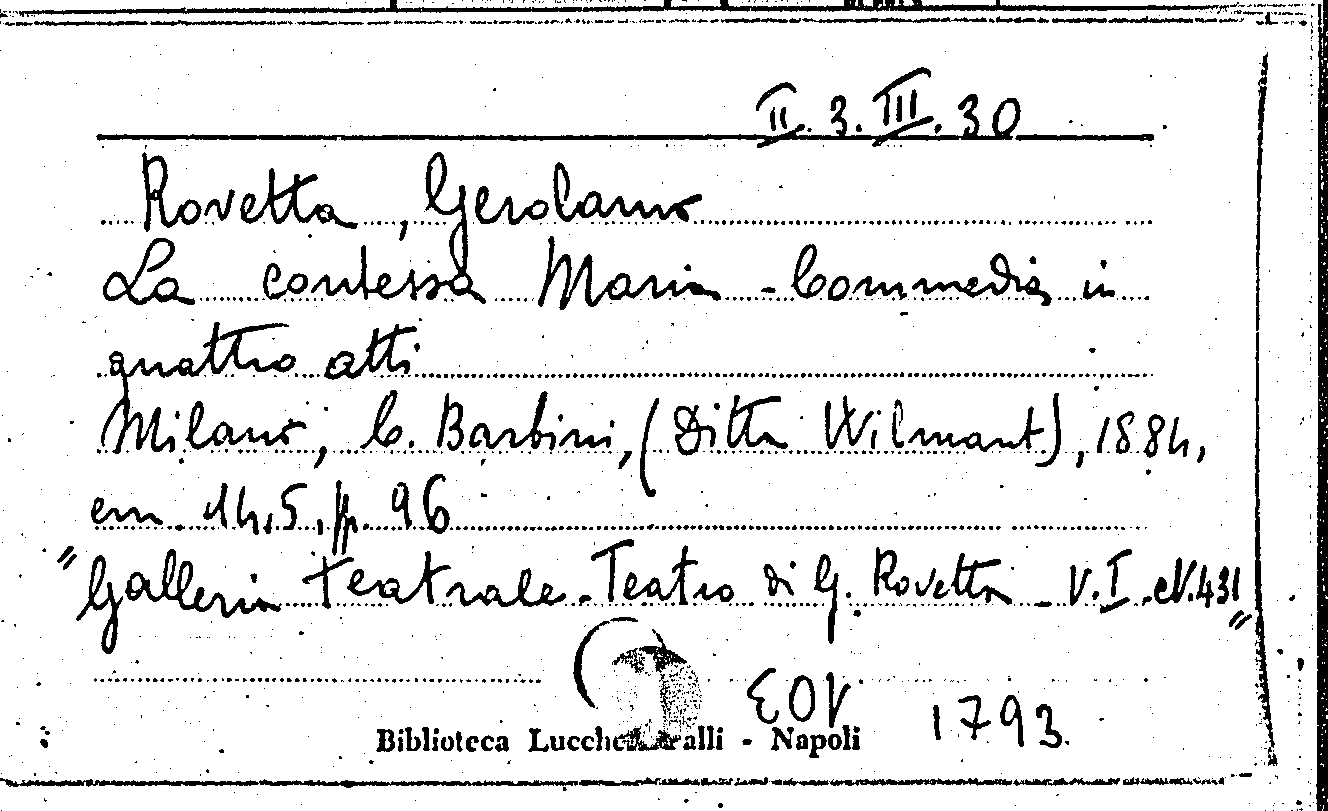 II. 3. III. 30
Rovetta, Gerolamo
La contessa Maria - Commedia in
quattro atti
Milano, C. Barbini, (Ditta Wilmant), 1884,
cm. 14,5, pp. 96
"Galleria teatrale - Teatro di G. Rovetta - V. I. N. 431"
1793
Biblioteca - Napoli